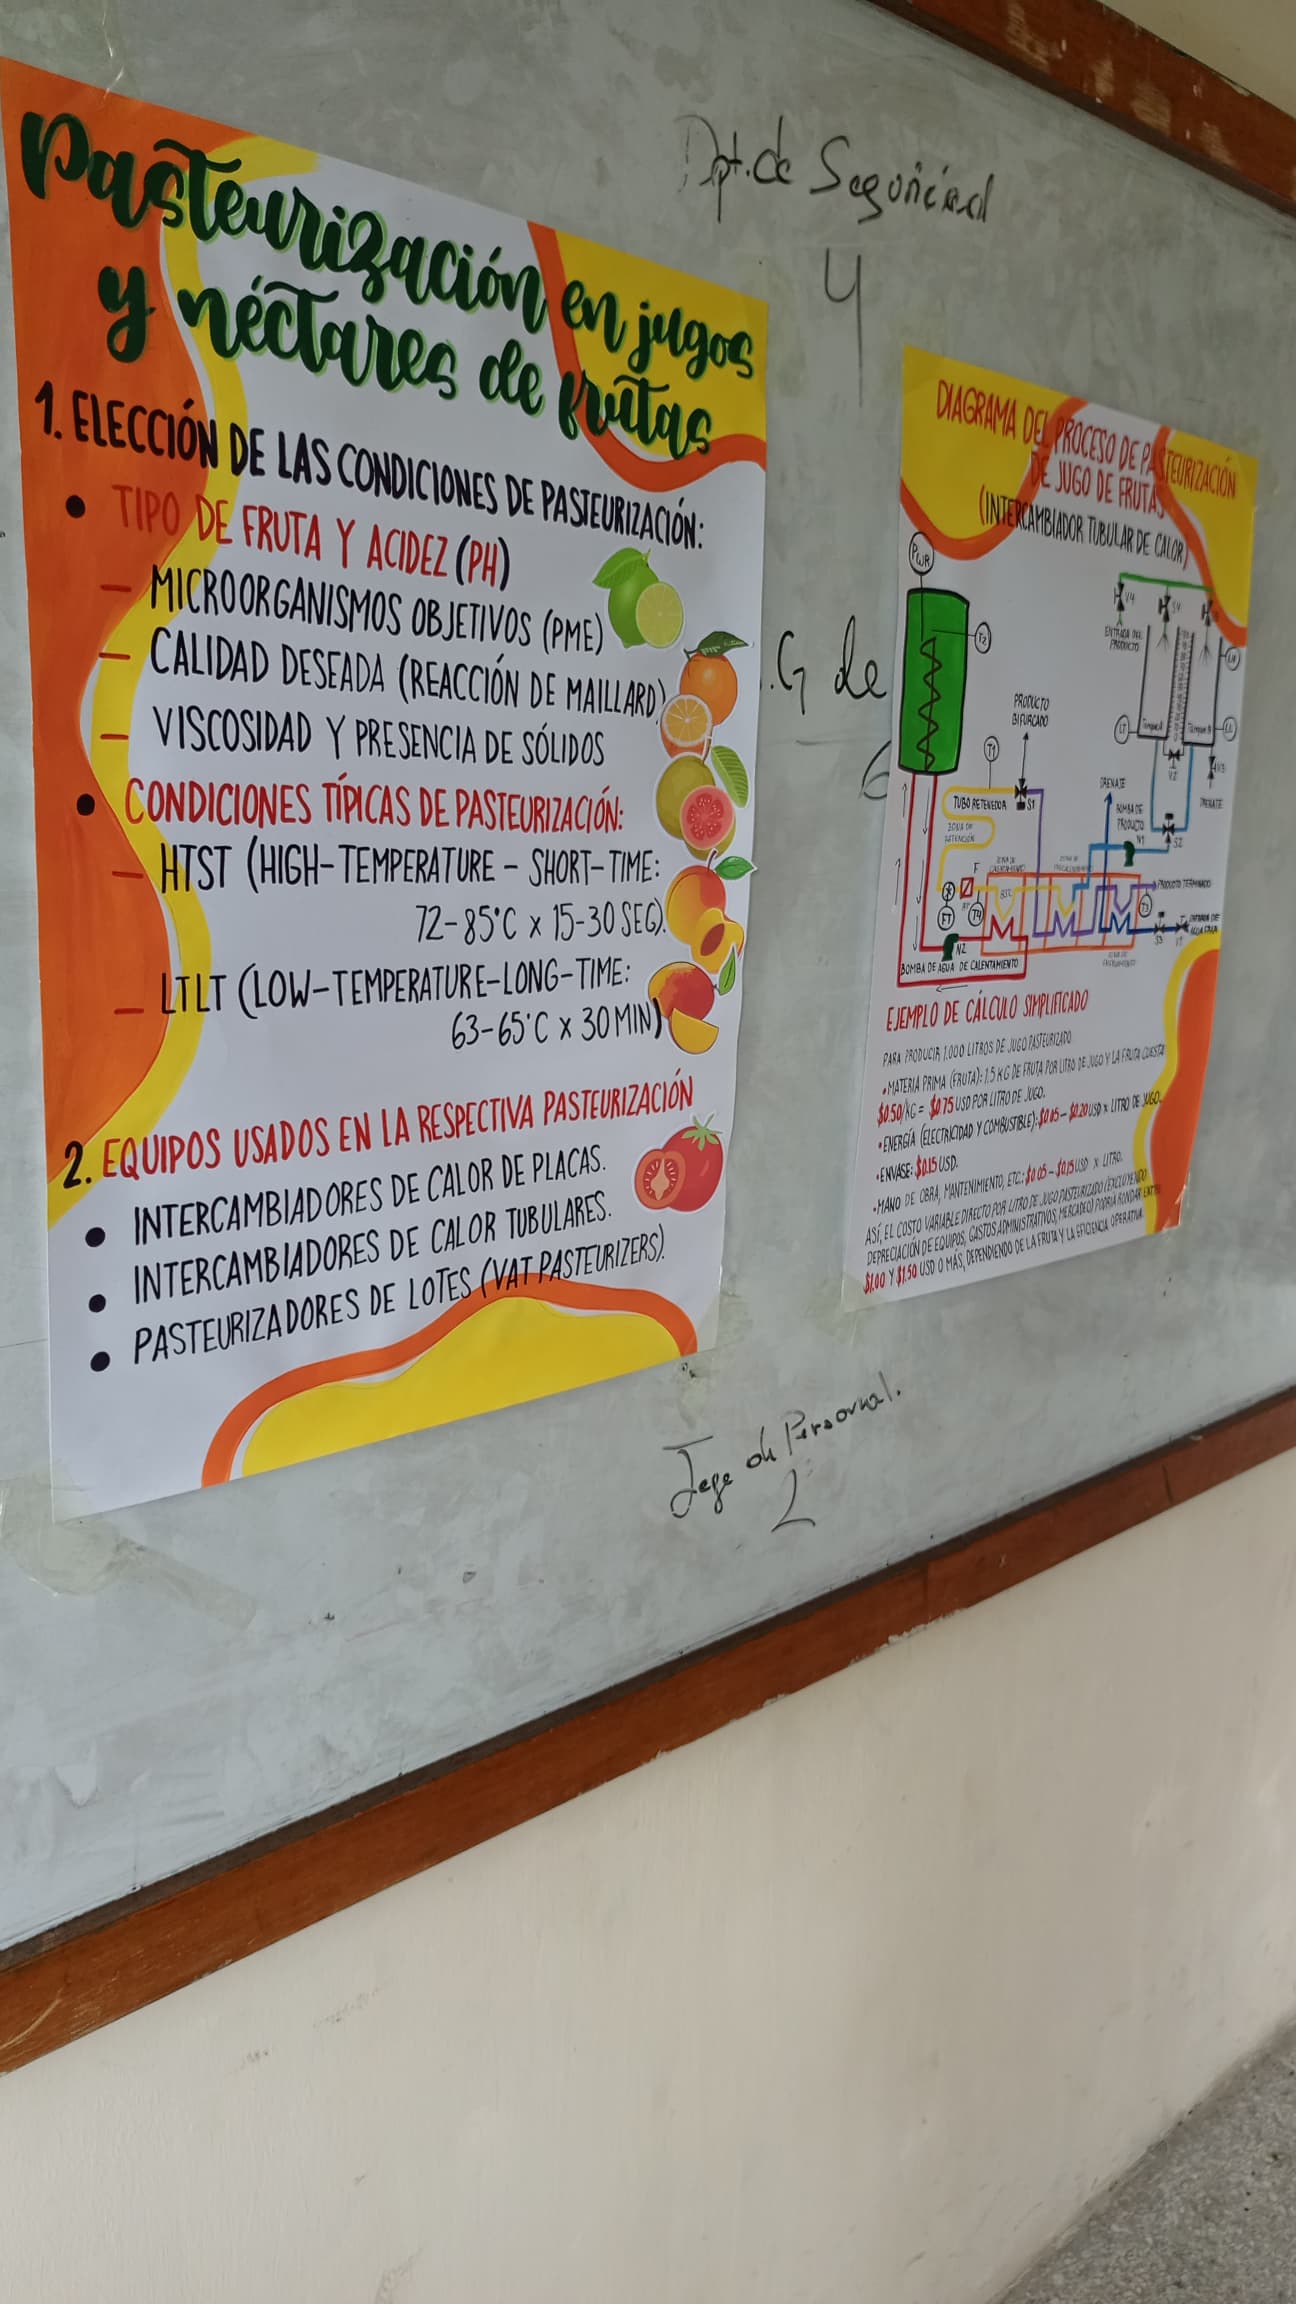 Pasteurización en jugos
y néctares de frutas
1. ELECCIÓN DE LAS CONDICIONES DE PASTEURIZACIÓN:
• TIPO DE FRUTA Y ACIDEZ (PH)
– MICROORGANISMOS OBJETIVOS (PME)
– CALIDAD DESEADA (REACCIÓN DE MAILLARD)
– VISCOSIDAD Y PRESENCIA DE SÓLIDOS
• CONDICIONES TÍPICAS DE PASTEURIZACIÓN:
– HTST (HIGH-TEMPERATURE - SHORT-TIME:
72-85°C x 15-30 SEG).
– LTLT (LOW-TEMPERATURE-LONG-TIME:
63-65°C x 30 MIN)
2. EQUIPOS USADOS EN LA RESPECTIVA PASTEURIZACIÓN
• INTERCAMBIADORES DE CALOR DE PLACAS.
• INTERCAMBIADORES DE CALOR TUBULARES.
• PASTEURIZADORES DE LOTES (VAT PASTEURIZERS).
Dpt. de Seguridad
4
G de
6
Jefe de Personal.
2
DIAGRAMA DEL PROCESO DE PASTEURIZACIÓN
DE JUGO DE FRUTAS
(INTERCAMBIADOR TUBULAR DE CALOR)
PWR
T2
V4
S4
ENTRADA DEL
PRODUCTO
LT
Tanque A
Tanque B
V2
V3
PRODUCTO
BIFURCADO
T1
S1
TUBO RETENEDOR
ZONA DE
RETENCIÓN
DRENAJE
DRENAJE
BOMBA DE
PRODUCTO
N1
S2
F
ZONA DE
CALENTAMIENTO
FT
T4
T3
PRODUCTO TERMINADO
S3
V1
ENTRADA DE
AGUA FRIA
N2
BOMBA DE AGUA DE CALENTAMIENTO
ZONA DE
ENFRIAMIENTO
EJEMPLO DE CÁLCULO SIMPLIFICADO
PARA PRODUCIR 1.000 LITROS DE JUGO PASTEURIZADO
• MATERIA PRIMA (FRUTA): 1.5 KG DE FRUTA POR LITRO DE JUGO Y LA FRUTA CUESTA
$0.50/KG = $0.75 USD POR LITRO DE JUGO.
• ENERGÍA (ELECTRICIDAD Y COMBUSTIBLE): $0.05 - $0.20 USD x LITRO DE JUGO.
• ENVASE: $0.15 USD.
• MANO DE OBRA, MANTENIMIENTO, ETC.: $0.05 - $0.15 USD X LITRO.
ASÍ, EL COSTO VARIABLE DIRECTO POR LITRO DE JUGO PASTEURIZADO (EXCLUYENDO
DEPRECIACIÓN DE EQUIPOS, GASTOS ADMINISTRATIVOS, MERCADEO) PODRÍA RONDAR ENTRE
$1.00 Y $1.50 USD O MÁS, DEPENDIENDO DE LA FRUTA Y LA EFICIENCIA OPERATIVA.